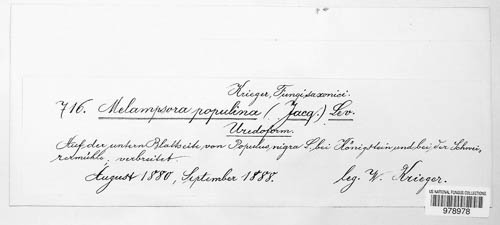 Krieger, Fungi saxonici.
716. Melampsora populina (Jacq.) Lev.
Uredoform.
Auf der untern Blattseite von Populus nigra L., bei Königstein und bei der Schweizermühle, verbreitet
August 1880, September 1888. leg. W. Krieger.
US NATIONAL FUNGUS COLLECTIONS
978978